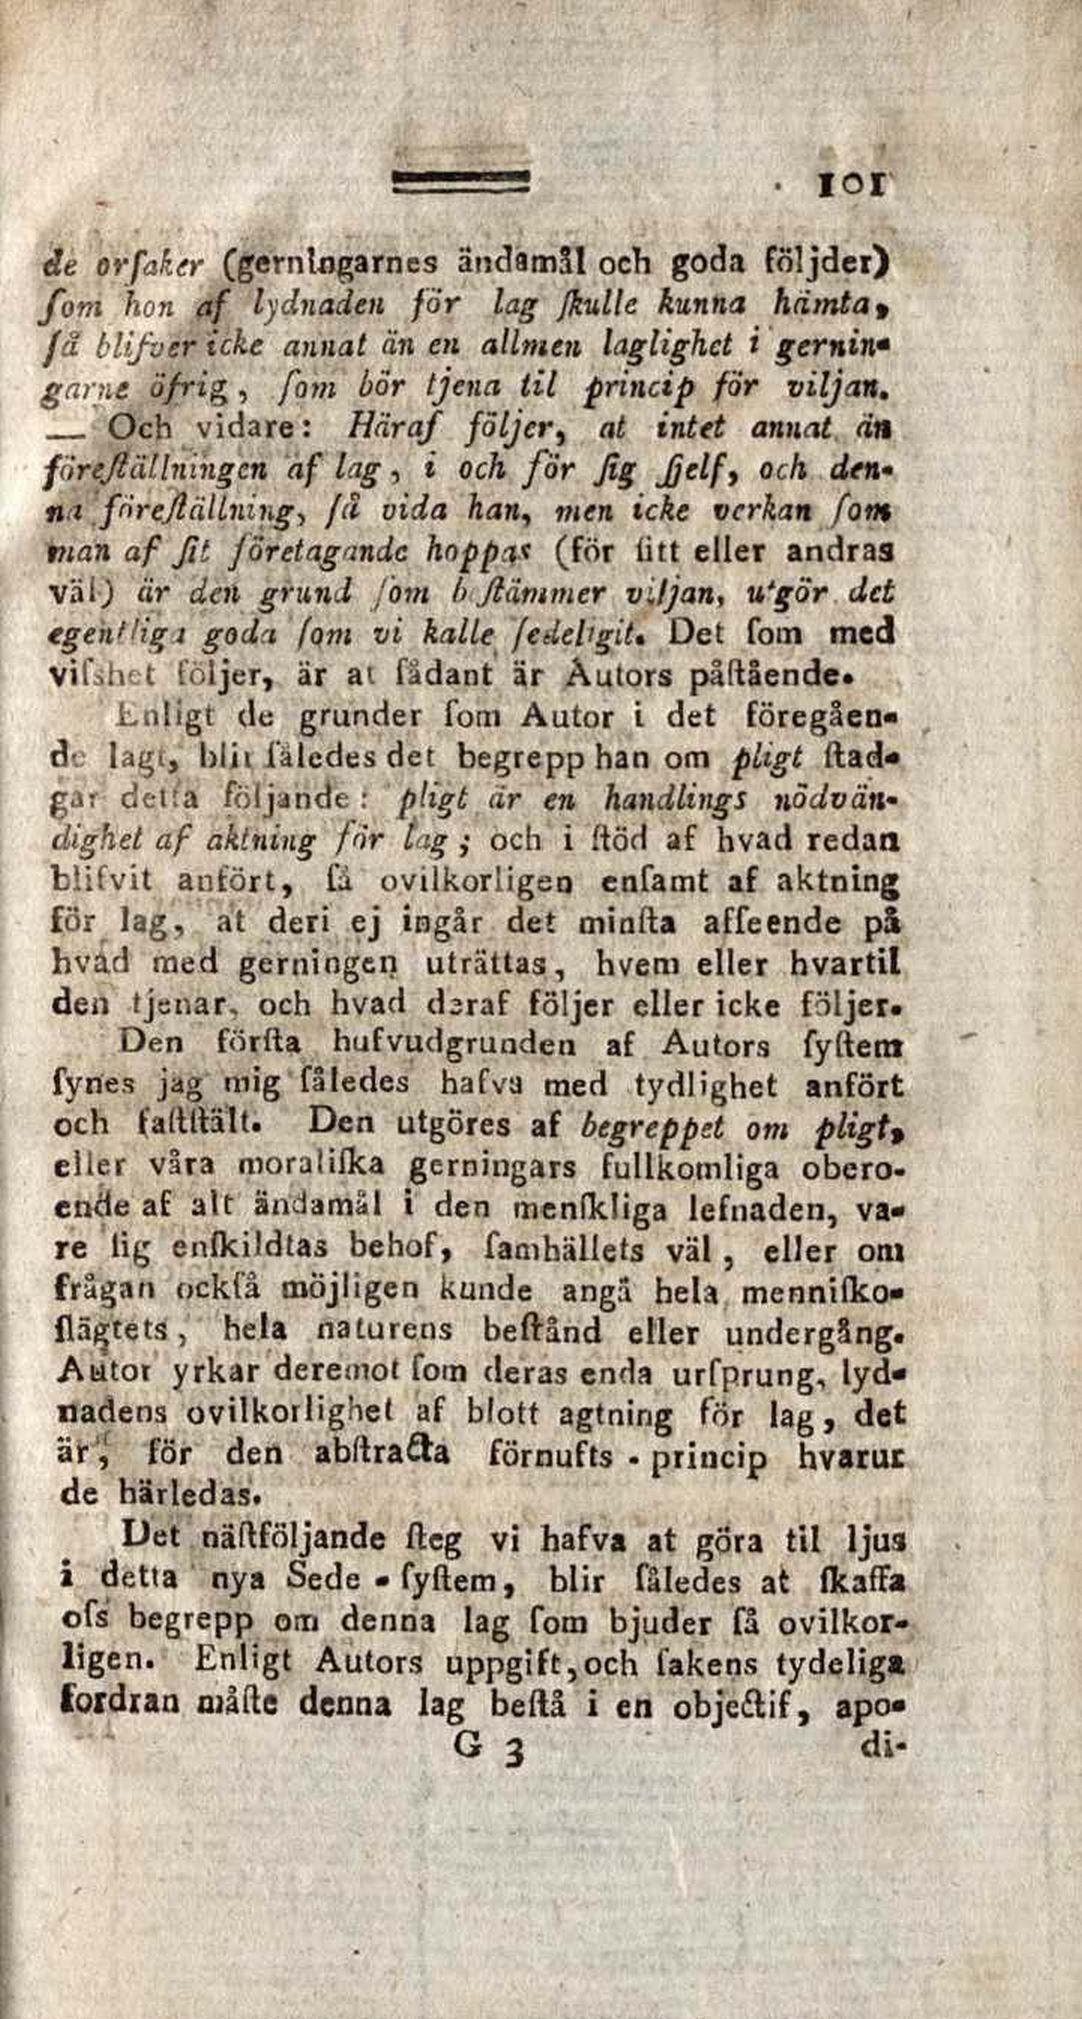 101
de orſaker (gerningarnes ändamål och goda följder)
ſom hon af lydnaden för lag ſkulle kunna hämta,
ſå blifver icke annat än en allmen laglighet i gernin-
garne öfrig, ſom bör tjena til princip för viljan.
— Och vidare: Häraf följer, at intet annat än
föreſtällningen af lag, i och för ſig ſjelf, och den-
na föreſtällning, ſå vida han, men icke verkan ſom
man af ſit företagande hoppas (för ſitt eller andras
väl) är den grund ſom beſtämmer viljan, utgör det
egentliga goda ſom vi kalle ſedeligit. Det ſom med
viſshet följer, är at ſådant är Autors påſtående.
Enligt de grunder ſom Autor i det föregåen-
de lagt, blir ſåledes det begrepp han om pligt ſtad-
gar detta följande: pligt är en handlings nödvän-
dighet af aktning för lag; och i ſtöd af hvad redan
blifvit anfört, ſå ovilkorligen enſamt af aktning
för lag, at deri ej ingår det minſta afſeende på
hvad med gerningen uträttas, hvem eller hvartil
den tjenar, och hvad deraf följer eller icke följer.
Den förſta hufvudgrunden af Autors ſyſtem
ſynes jag mig ſåledes hafva med tydlighet anfört
och faſtſtält. Den utgöres af begreppet om pligt,
eller våra moraliſka gerningars fullkomliga obero-
ende af alt ändamål i den menſkliga lefnaden, va-
re ſig enſkildtas behof, ſamhällets väl, eller om
frågan ockſå möjligen kunde angå hela menniſko-
ſlägtets, hela naturens beſtånd eller undergång.
Autor yrkar deremot ſom deras enda urſprung, lyd-
nadens ovilkorlighet af blott agtning för lag, det
är, för den abſtracta förnufts-princip hvarur
de härledas.
Det näſtföljande ſteg vi hafva at göra til ljus
i detta nya Sede-ſyſtem, blir ſåledes at ſkaffa
oſs begrepp om denna lag ſom bjuder ſå ovilkor-
ligen. Enligt Autors uppgift, och ſakens tydeliga
fordran måſte denna lag beſtå i en objectif, apo-
G 3 di-